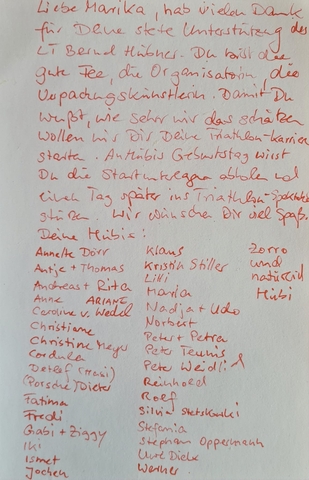 Liebe Marika, hab vielen Dank
für Deine stete Unterstützung des
LT Bernd Hübner. Du bist die
gute Fee, die Organisatorin, die
Verpackungskünstlerin. Damit Du
wußt, wie sehr wir das schätzen
wollen wir Dir Deine Triathlon-Karriere
starten. An Hübis Geburtstag wirst
Du die Startunterlagen abholen und
einen Tag später ins Triathlon-Spektakel
stürzen. Wir wünschen Dir viel Spaß.
Deine Hübis:
Annette Dörr Klaus Zorro
Antje + Thomas Kristin Stiller und
Andreas + Rita Lilli natürlich
Anne ARIANE Maria Hübi
Caroline v. Wedel Nadja + Udo
Christiane Norbert
Christine Meyer Peter + Petra
Cordula Peter Teunis
Detlef (Hasi) Peter Weidlich
(Porsche) Dieter Reinhold
Fatima Rolf
Fredi Silvia
Gabi + Ziggy Stefania
Iki Stephan Oppermann
Ismet Uwe
Jochen Werner